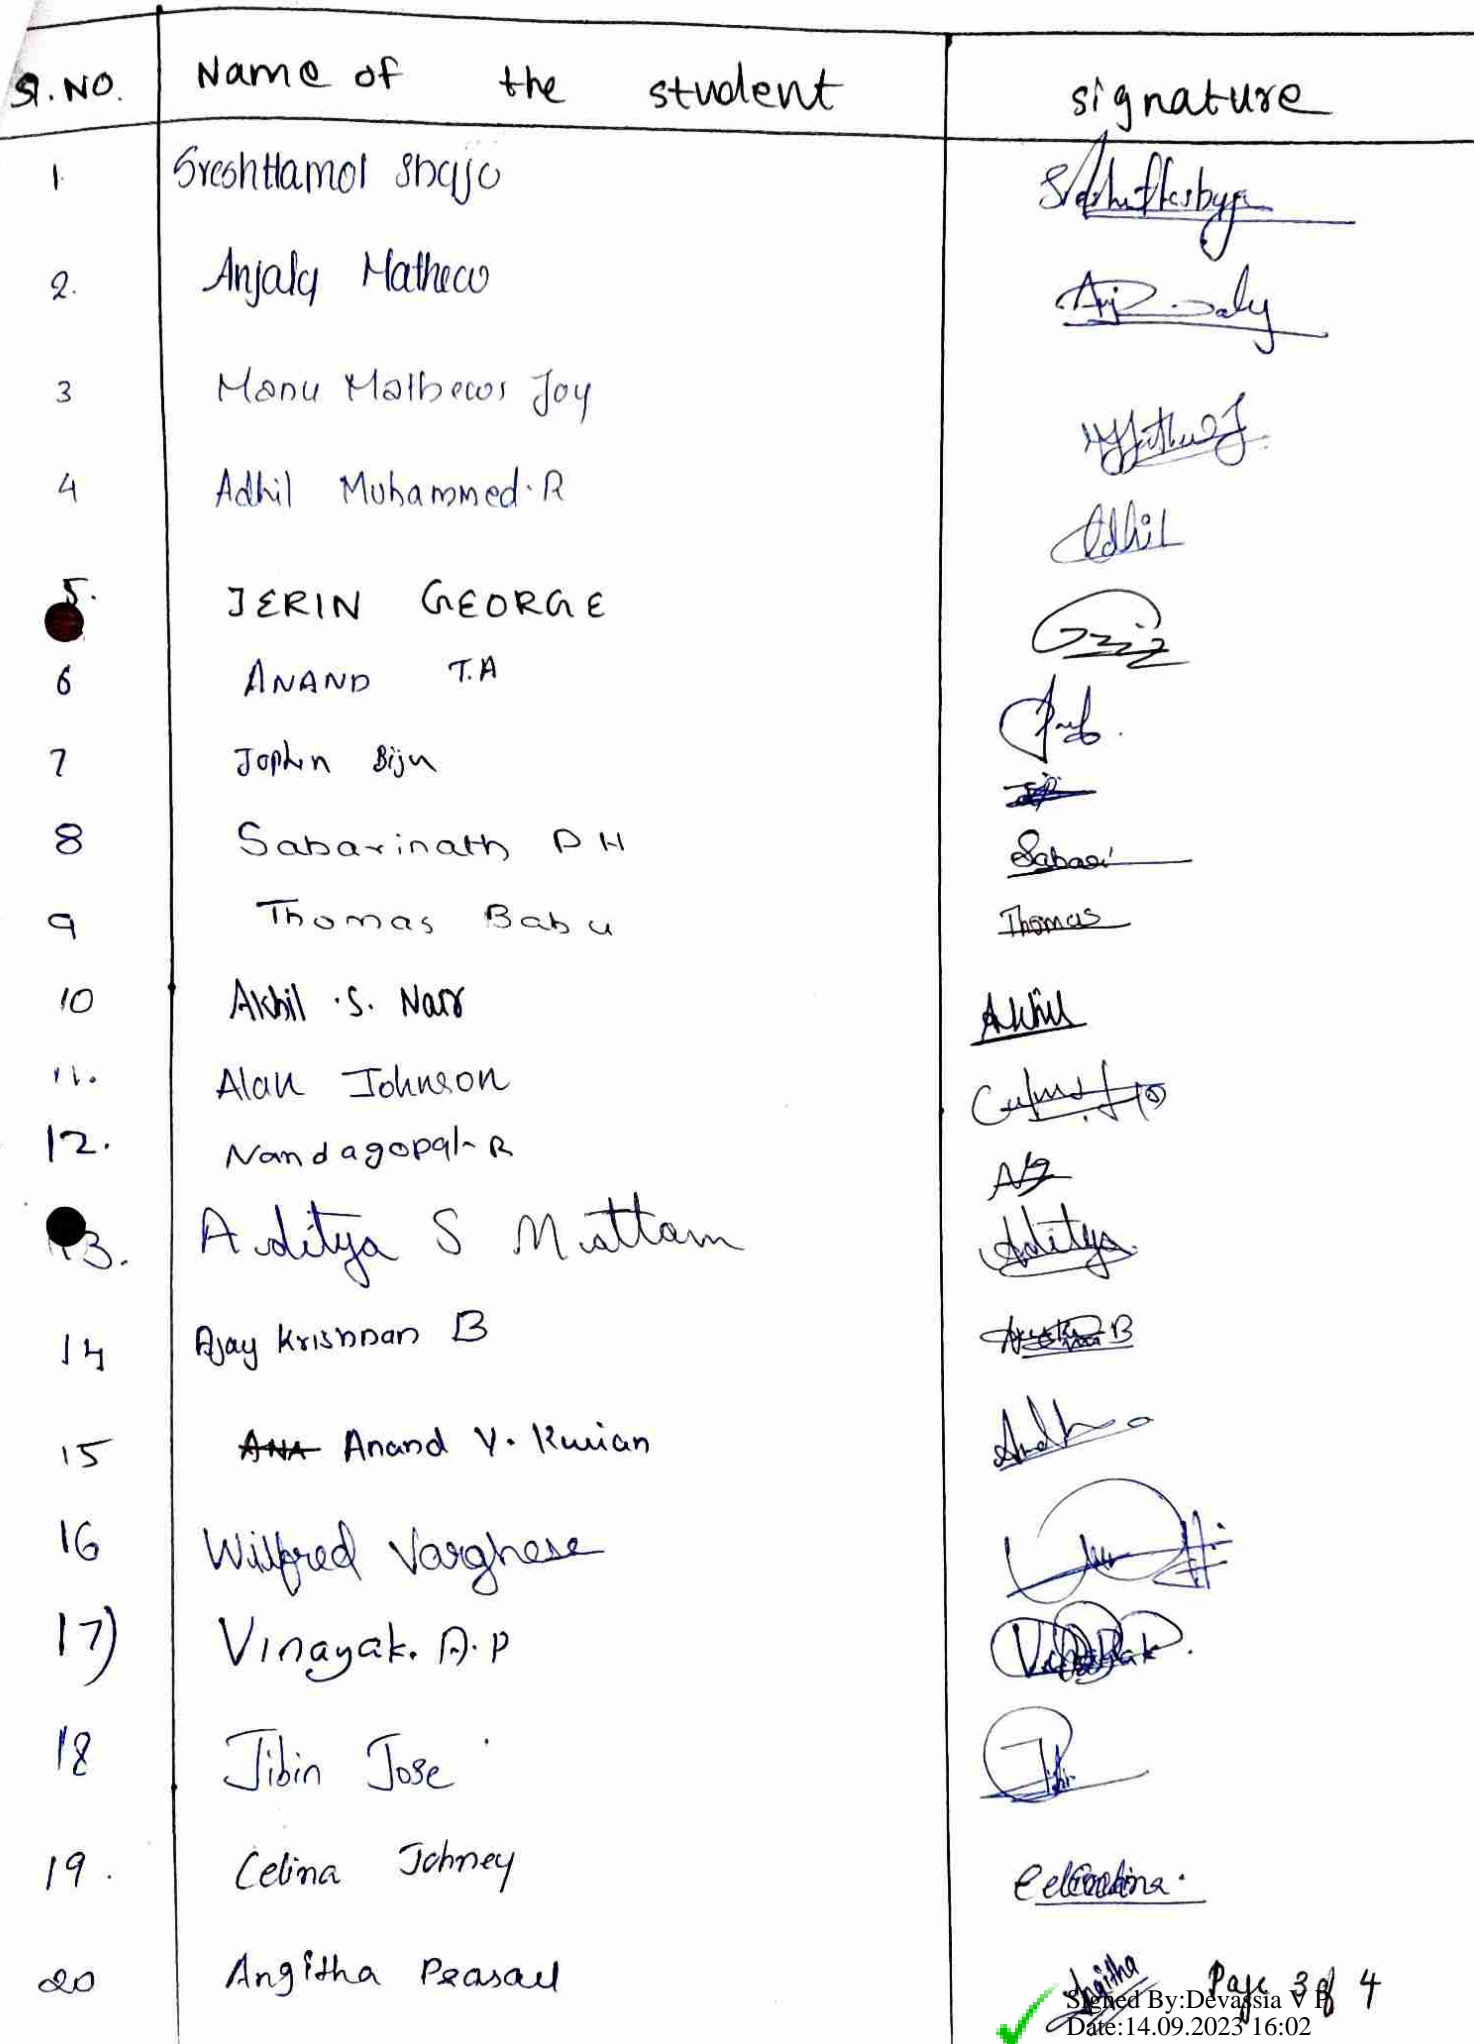 Sl.NO. Name of the student signature
1. Sreshttamol Shaju
2. Anjaly Mathew Anjaly
3 Manu Mathews Joy
4 Adhil Muhammed.R Adhil
5. JERIN GEORGE
6 ANAND T.A
7 Jophin Biju
8 Sabarinath P H Sabari
9 Thomas Babu Thomas
10 Akhil .S. Nair Akhil
11. Alan Johnson
12. Nandagopal R
13. Aditya S Mattam Aditya
14 Ajay Krishnan B B
15 Anand Y. Kurian
16 Wilfred Varghese
17) Vinayak. A.P
18 Jibin Jose Jibi
19. Celina Johney Celina.
20 Angitha Prasad Angitha Page 3 of 4
Signed By:Devassia V P
Date:14.09.2023 16:02